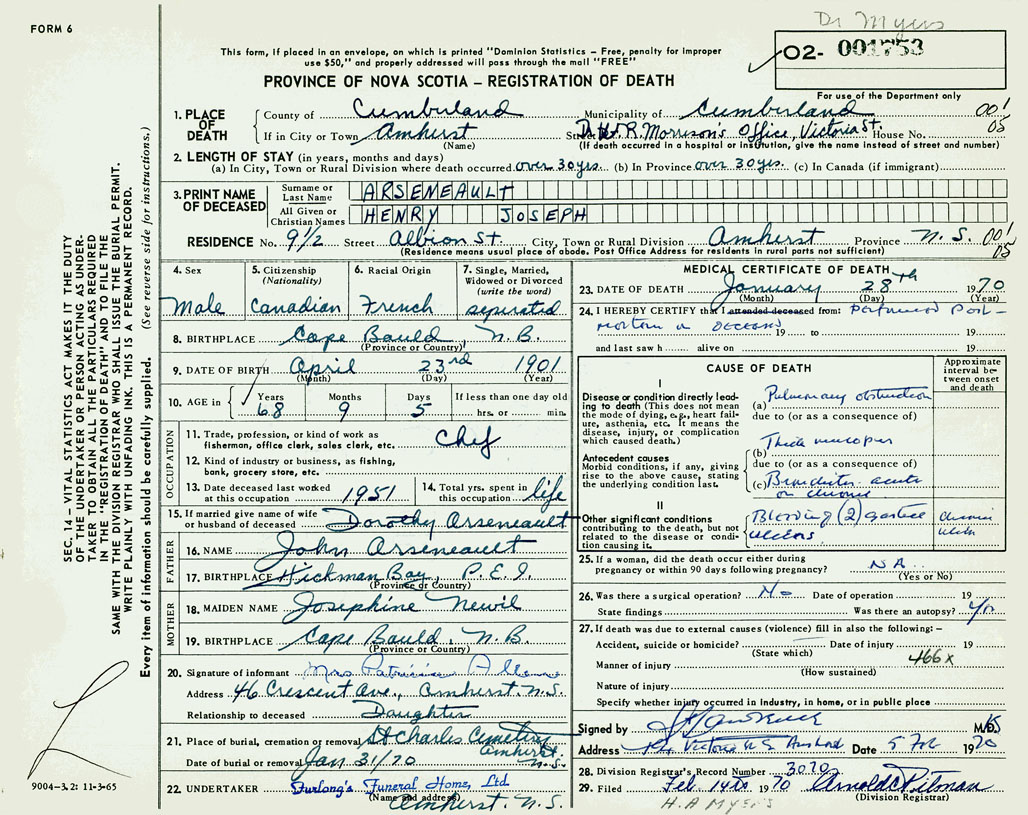 Dr Myers
FORM 6
This form, if placed in an envelope, on which is printed "Dominion Statistics – Free, penalty for improper
use $50," and properly addressed will pass through the mail "FREE"
02- 001753
PROVINCE OF NOVA SCOTIA – REGISTRATION OF DEATH
For use of the Department only
1. PLACE OF DEATH
County of Cumberland Municipality of Cumberland 001
If in City or Town Amherst Street R. Morrison's Office, Victoria St. House No. 05
(Name) (If death occurred in a hospital or institution, give the name instead of street and number)
2. LENGTH OF STAY (in years, months and days)
(a) In City, Town or Rural Division where death occurred over 30 yrs. (b) In Province over 30 yrs. (c) In Canada (if immigrant)
3. PRINT NAME OF DECEASED
Surname or Last Name ARSENEAULT
All Given or Christian Names HENRY JOSEPH
RESIDENCE No. 9½ Street Albion St. City, Town or Rural Division Amherst Province N. S. 001
(Residence means usual place of abode. Post Office Address for residents in rural parts not sufficient) 05
4. Sex
Male
5. Citizenship
(Nationality)
Canadian
6. Racial Origin
French
7. Single, Married,
Widowed or Divorced
(write the word)
seperated
8. BIRTHPLACE Cape Bauld N.B.
(Province or Country)
9. DATE OF BIRTH April 23rd 1901
(Month) (Day) (Year)
10. AGE in Years Months Days If less than one day old
68 9 5 hrs. or min.
OCCUPATION
11. Trade, profession, or kind of work as
fisherman, office clerk, sales clerk, etc. chef
12. Kind of industry or business, as fishing,
bank, grocery store, etc.
13. Date deceased last worked
at this occupation 1951
14. Total yrs. spent in
this occupation life
15. If married give name of wife
or husband of deceased Dorothy Arseneault
FATHER
16. NAME John Arseneault
17. BIRTHPLACE Hickman Bay, P.E.I.
(Province or Country)
MOTHER
18. MAIDEN NAME Josephine Newil
19. BIRTHPLACE Cape Bauld, N.B.
(Province or Country)
20. Signature of informant Mrs
Address 46 Crescent Ave., Amherst. N.S.
Relationship to deceased Daughter
21. Place of burial, cremation or removal St Charles Cemetery
Amherst
Date of burial or removal Jan 31/70 N.S.
22. UNDERTAKER Furlong's Funeral Home, Ltd
(Name and address)
Amherst, N.S.
MEDICAL CERTIFICATE OF DEATH
23. DATE OF DEATH January 28th 1970
(Month) (Day) (Year)
24. I HEREBY CERTIFY that I attended deceased from: Performed Post-
mortem on deceased 19 to 19
and last saw h alive on 19
CAUSE OF DEATH
Approximate
interval be-
tween onset
and death
I
Disease or condition directly lead-
ing to death (This does not
mean the mode of dying, e.g., heart fail-
ure, asthenia, etc. It means the
disease, injury, or complication
which caused death.)
(a) Pulmonary obstruction
due to (or as a consequence of)
Antecedent causes
Morbid conditions, if any, giving
rise to the above cause, stating
the underlying condition last.
(b) Thick mucopus
due to (or as a consequence of)
(c) Bronchitis- acute
on chronic
II
Other significant conditions
contributing to the death, but not
related to the disease or condi-
tion causing it.
Bleeding (2) gastric
ulcers
chronic
ulcers
25. If a woman, did the death occur either during
pregnancy or within 90 days following pregnancy? NA
(Yes or No)
26. Was there a surgical operation? No Date of operation 19
State findings Was there an autopsy? Yes
27. If death was due to external causes (violence) fill in also the following: –
Accident, suicide or homicide? Date of injury 19
(State which) 466x
Manner of injury
(How sustained)
Nature of injury
Specify whether injury occurred in Industry, in home, or in public place
Signed by M.D.
Address Victoria Amherst Date 5 Feb 1970
28. Division Registrar's Record Number 3070
29. Filed Feb. 14th 1970 Arnold C Pitman
(Division Registrar)
H.A Myers
SEC. 14 – VITAL STATISTICS ACT MAKES IT THE DUTY
OF THE UNDERTAKER OR PERSON ACTING AS UNDER-
TAKER TO OBTAIN ALL THE PARTICULARS REQUIRED
IN THE "REGISTRATION OF DEATH" AND TO FILE THE
SAME WITH THE DIVISION REGISTRAR WHO SHALL ISSUE THE BURIAL PERMIT.
WRITE PLAINLY WITH UNFADING INK. THIS IS A PERMANENT RECORD.
Every item of information should be carefully supplied. (See reverse side for instructions.)
9004–3.2: 11-3-65